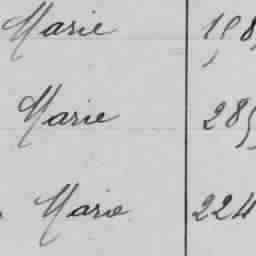 Marie 158
Marie 285
Marie 224